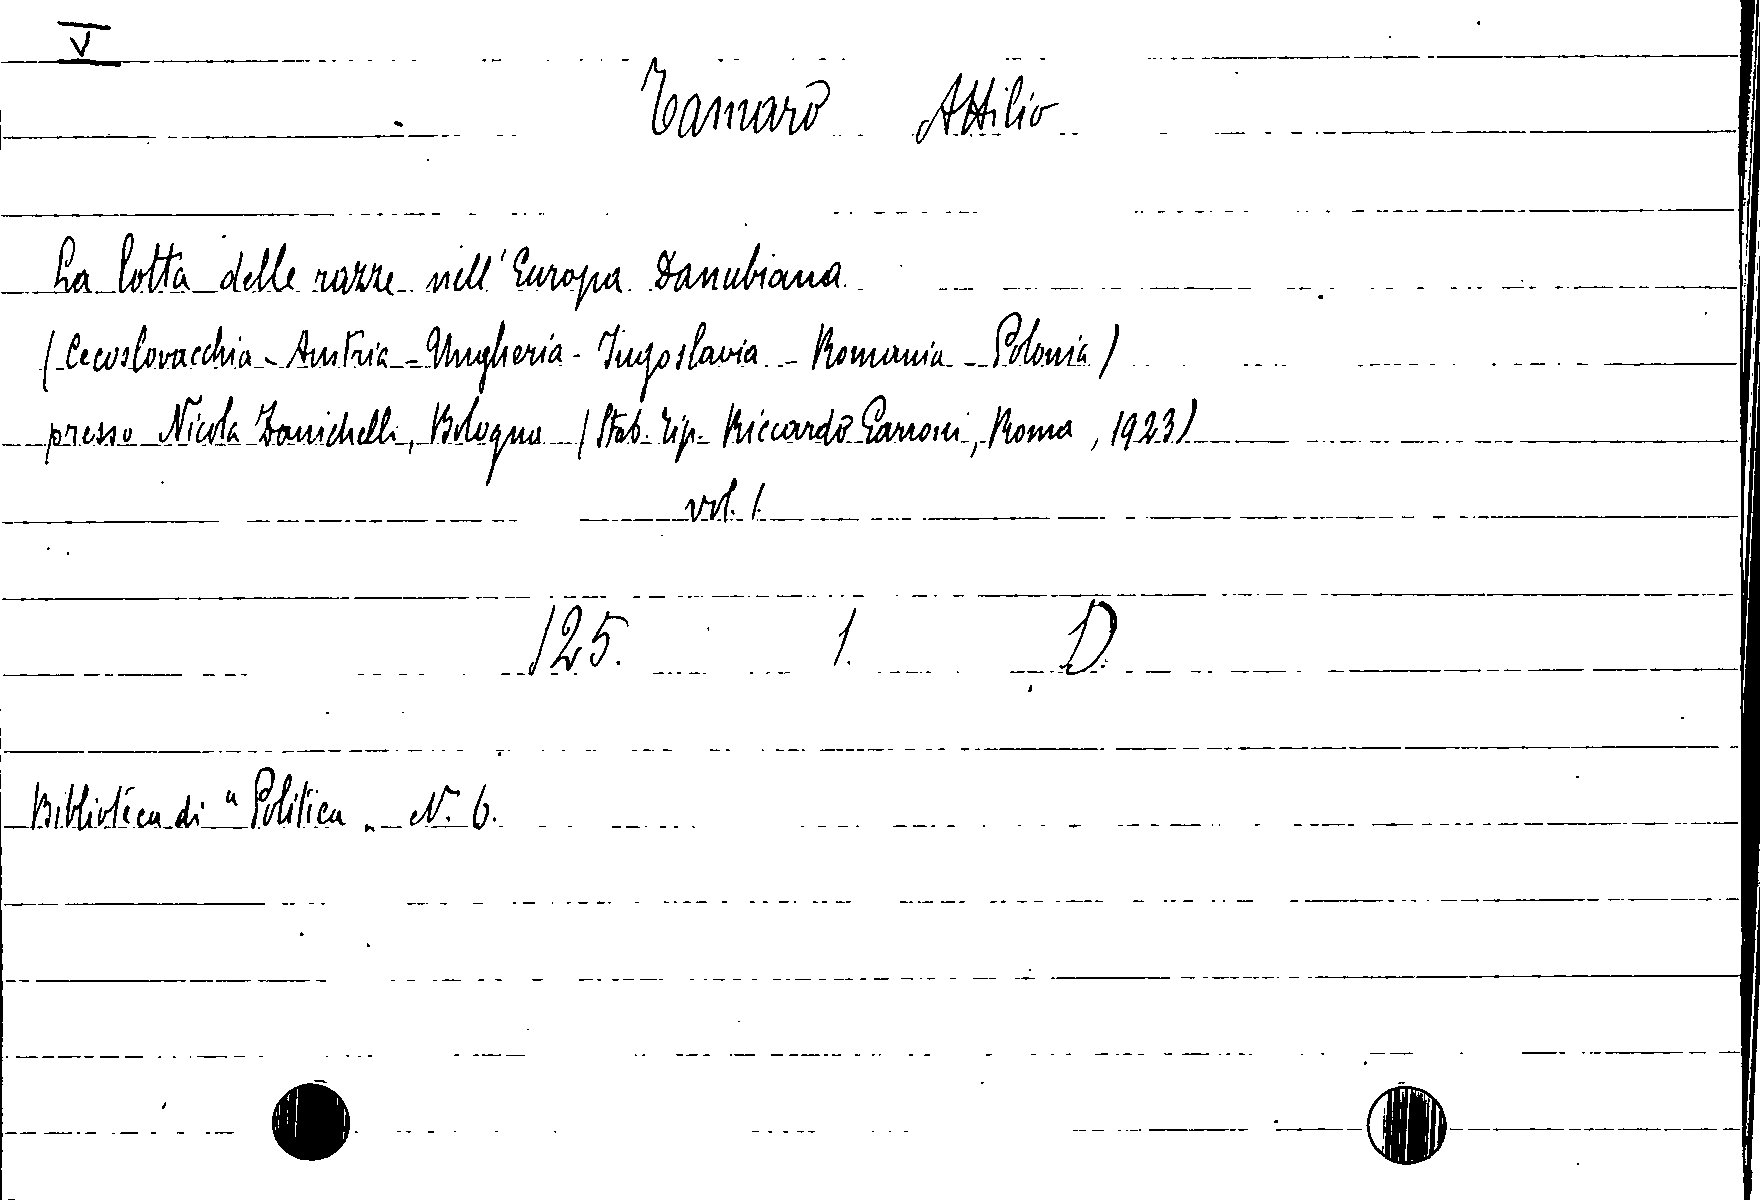 V
Tamaro Attilio
La lotta delle razze nell'Europa Danubiana
(Cecoslovacchia - Austria - Ungheria - Jugoslavia - Romania - Polonia)
presso Nicola Zanichelli, Bologna (Stab. Tip. Riccardo Garroni, Roma, 1923)
vol. 1.
125. 1. D.
Biblioteca di "Politica„ N. 6.